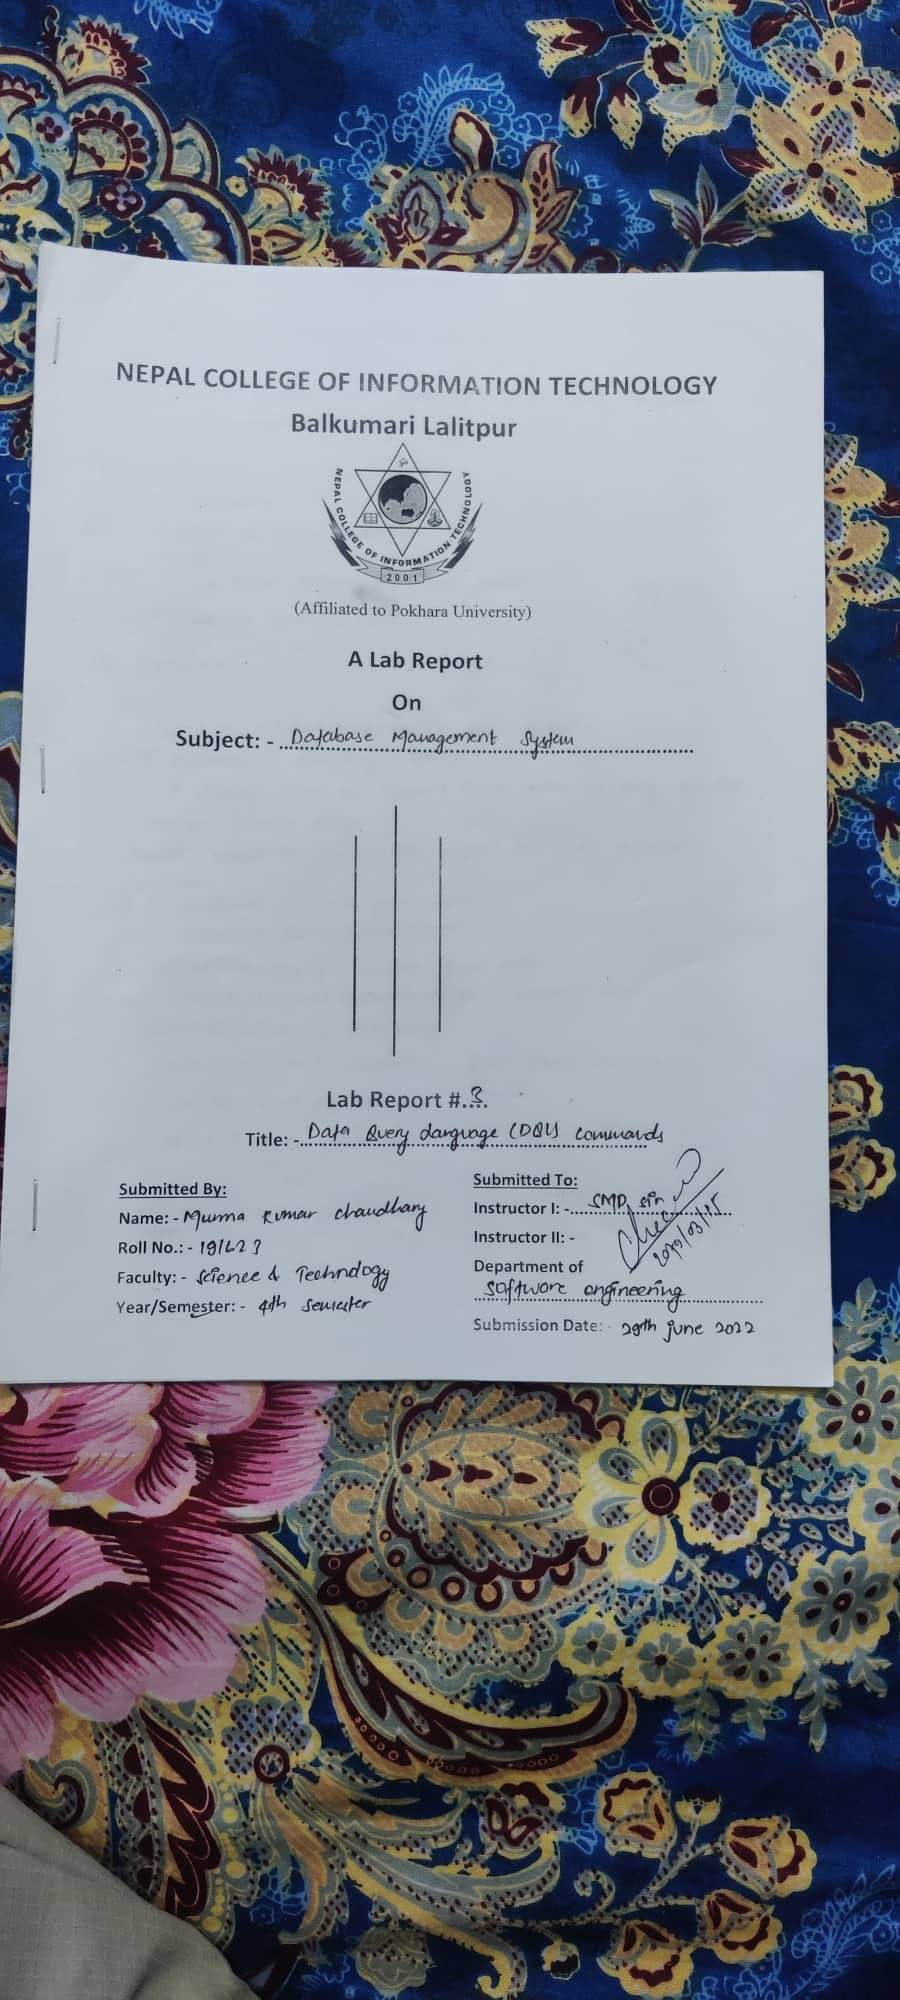 NEPAL COLLEGE OF INFORMATION TECHNOLOGY
Balkumari Lalitpur
NEPAL COLLEGE OF INFORMATION TECHNOLOGY
2001
(Affiliated to Pokhara University)
A Lab Report
On
Subject: - Database Management System
Lab Report #.3
Title: - Data Query Language (DQL) commands
Submitted By:
Name: - Munna Kumar Chaudhary
Roll No.: -
Faculty: - Science & Technology
Year/Semester: - 4th semester
Submitted To:
Instructor I: - SMD sir
Instructor II: -
Department of
Software engineering
Submission Date: - 29th June 2022
2079/03/15